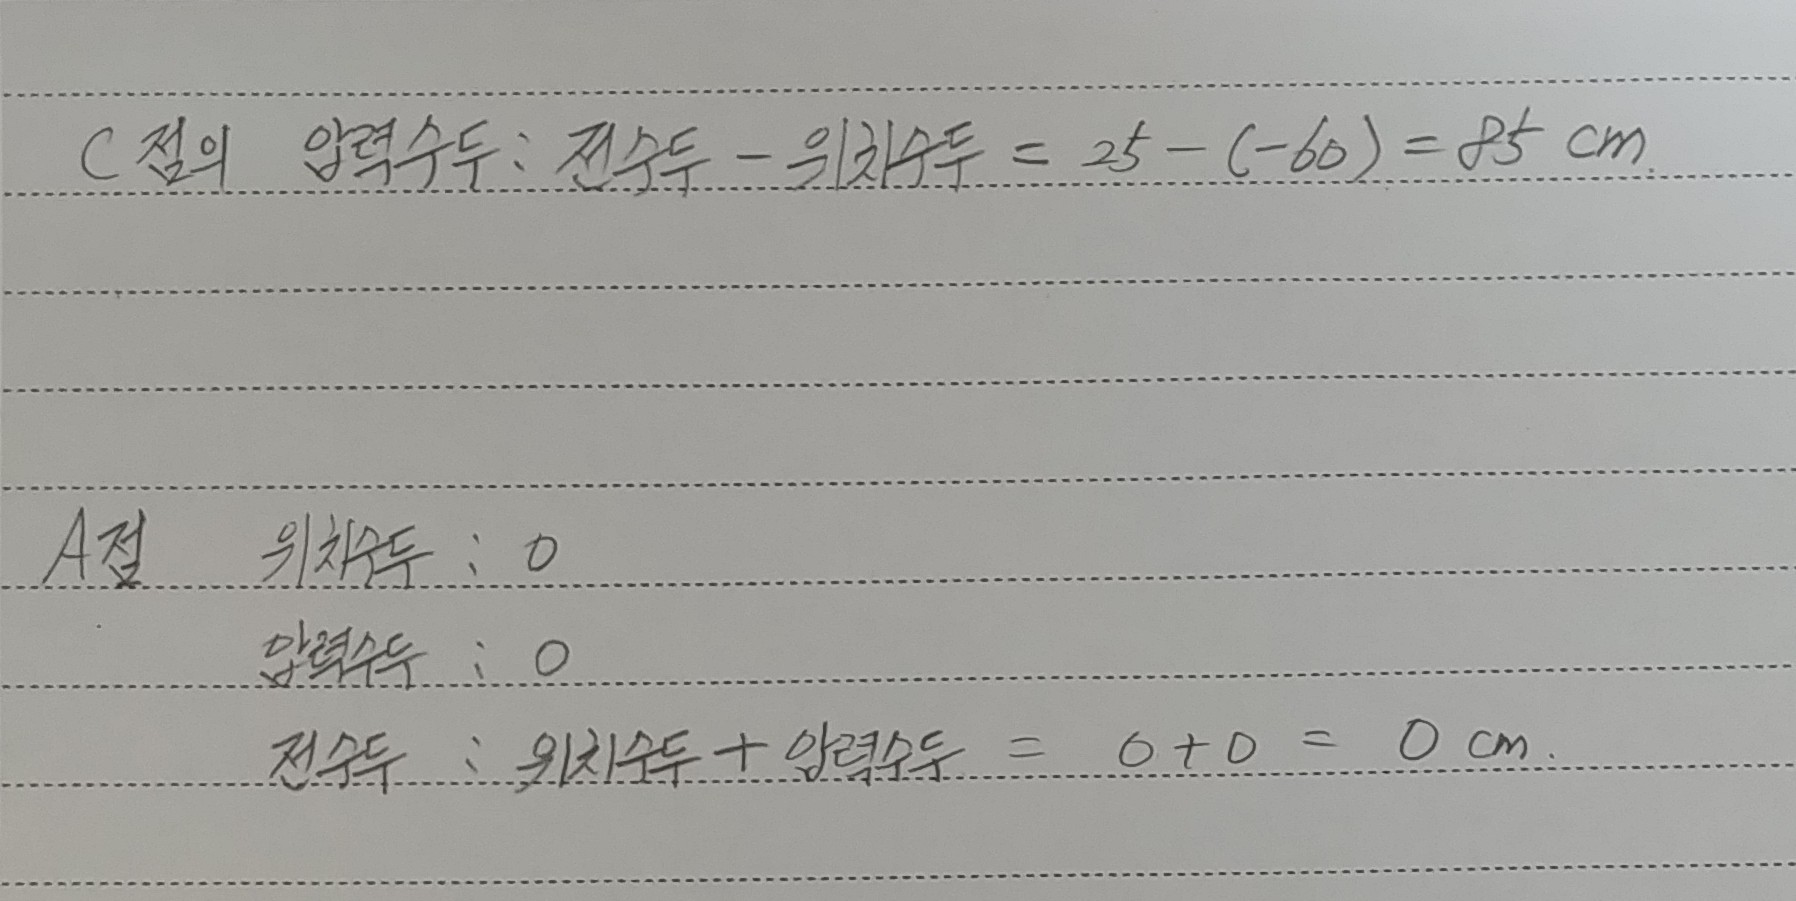 C점의 압력수두: 전수두 - 위치수두 = 25 - (-60) = 85 cm.
A점 위치수두 : 0
압력수두 : 0
전수두 : 위치수두 + 압력수두 = 0 + 0 = 0 cm.